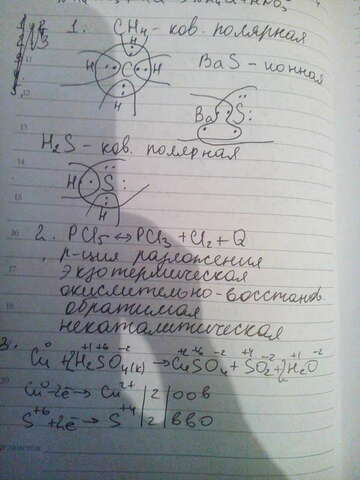 1. CH4 - ков. полярная
H
H C H
H
BaS - ионная
Ba S
H2S - ков. полярная
H S
H
2. PCl5 ↔ PCl3 + Cl2 + Q
р-ция разложения
экзотермическая
окислительно-восстанов.
обратимая
некаталитическая
3.
0 +1 +6 -2 +2 +6 -2 +4 -2 +1 -2
Cu + 2H2SO4(к) → CuSO4 + SO2 + 2H2O
Cu0 - 2e̅ → Cu2+ | 2 | оов
S+6 + 2e̅ → S+4 | 2 | вво